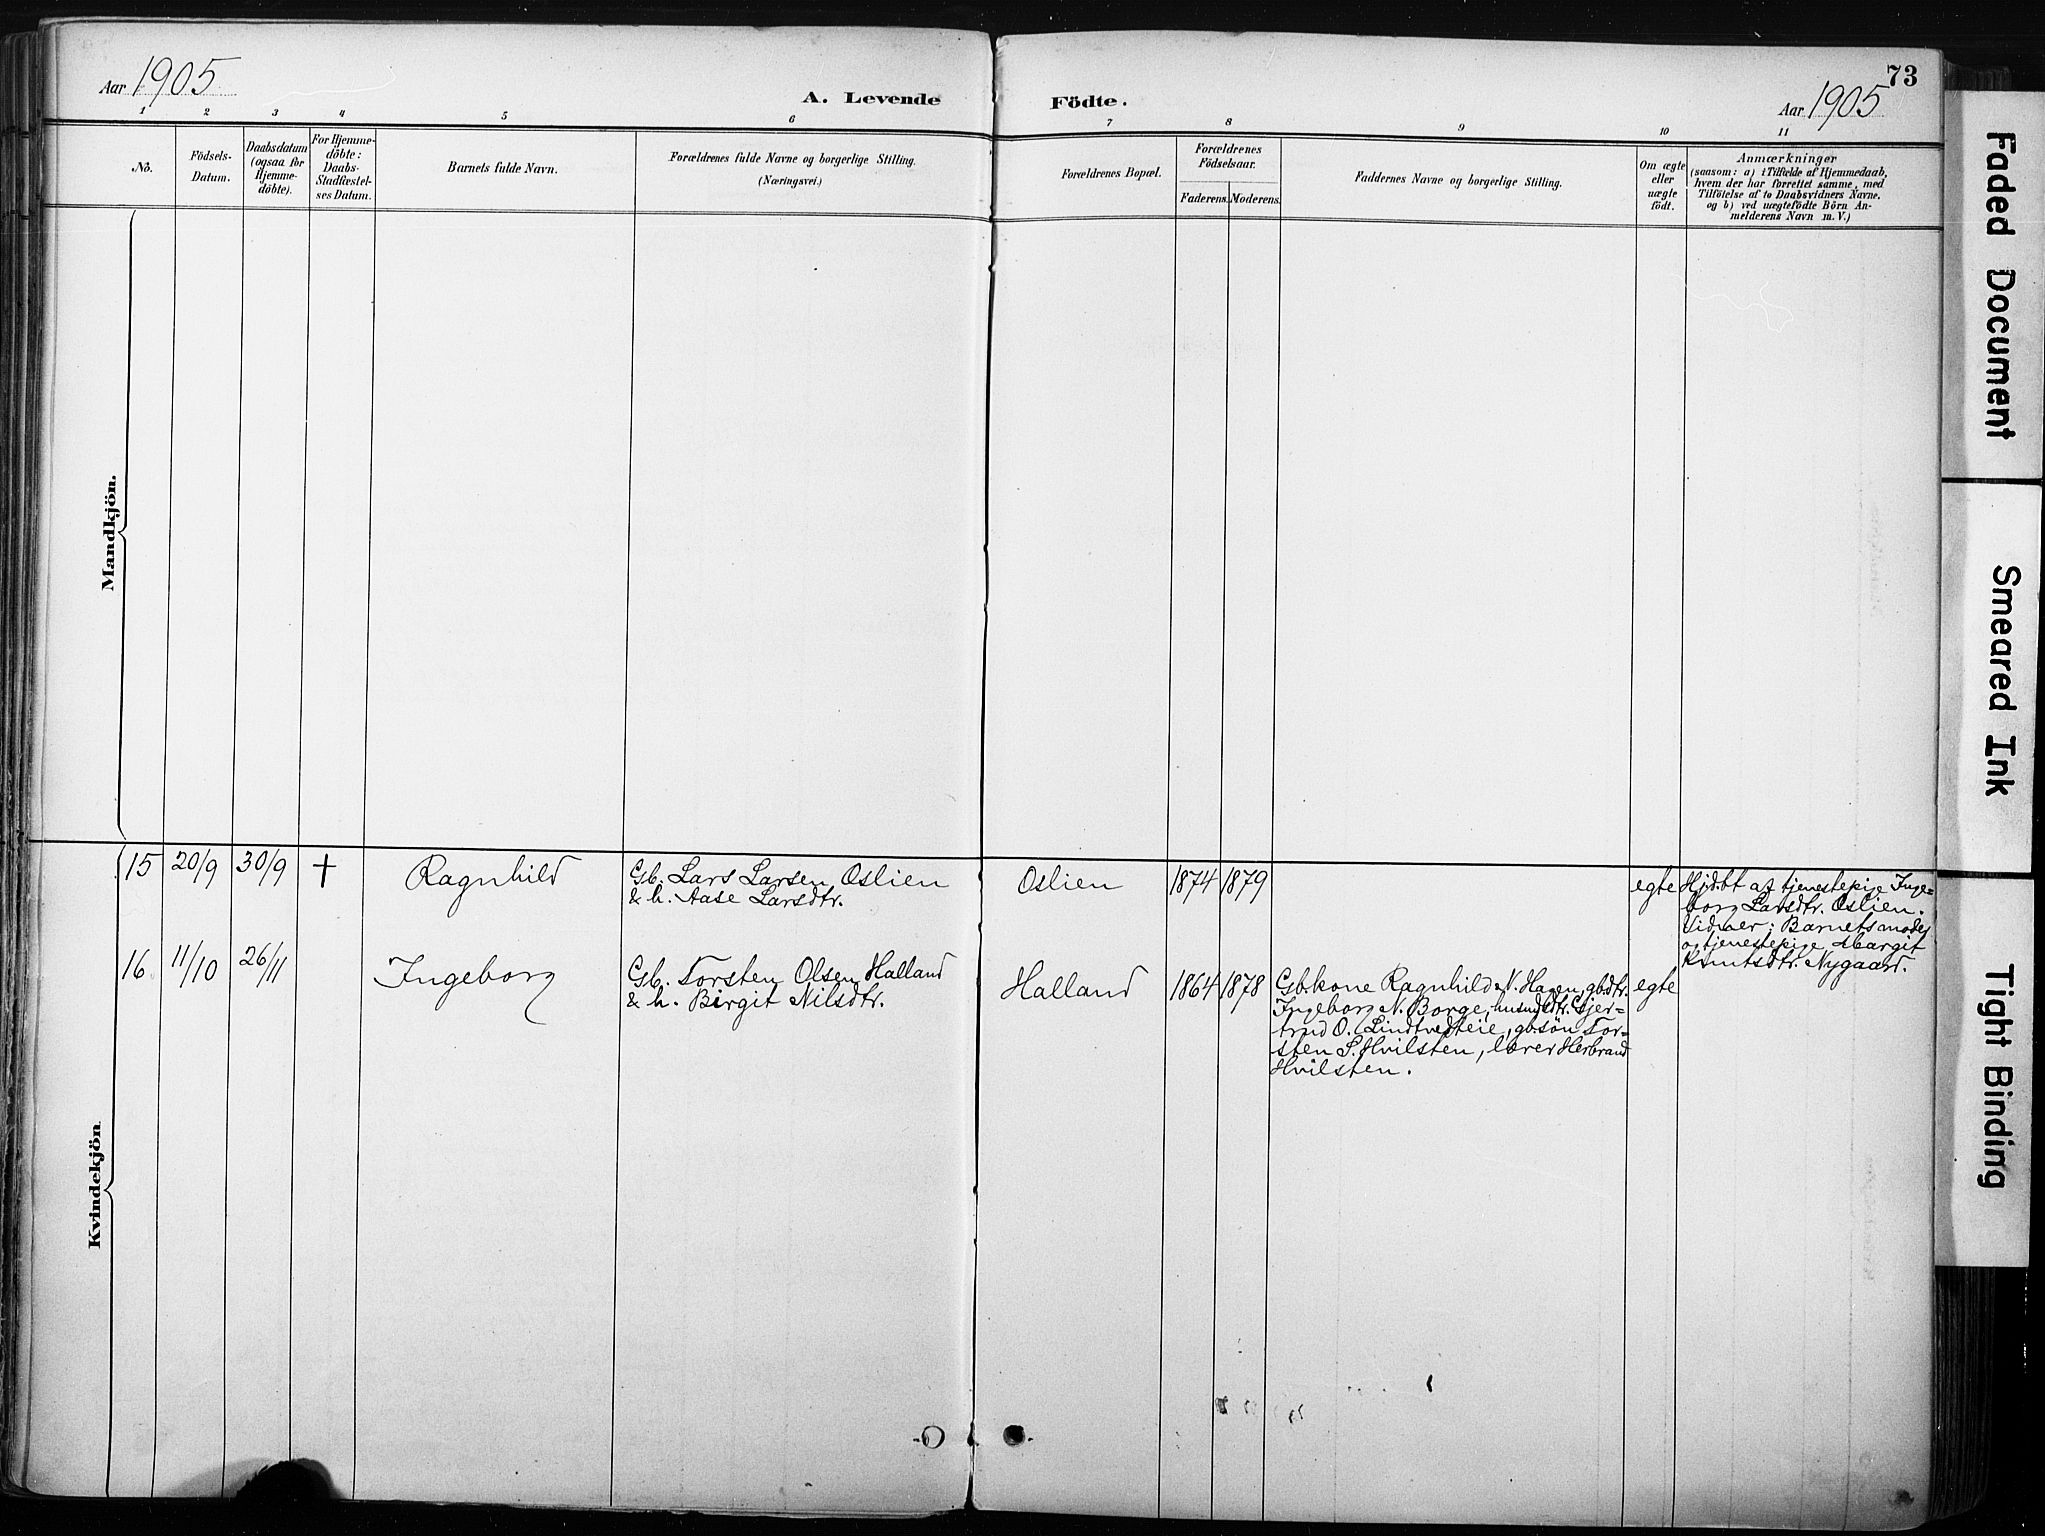 73
Aar 1905
A. Levende Födte.
Aar 1905
1 2 3 4 5 6 7 8 9 10 11
No.
Födsels-
Datum.
Daabsdatum
(ogsaa for
Hjemme-
döbte).
For Hjemme-
döbte:
Daabs-
Stadfæstel-
ses Datum.
Barnets fulde Navn.
Forældrenes fulde Navne og borgerlige Stilling.
(Næringsvei.)
Forældrenes Bopæl.
Forældrenes
Födselsaar.
Faderens. Moderens.
Faddernes Navne og borgerlige Stilling.
Om ægte
eller
uægte
födt.
Anmærkninger
(saasom: a) i Tilfælde af Hjemmedaab,
hvem der har forrettet samme, med
Tilföielse af to Daabsvidners Navne.
og b) ved uægtefödte Börn An-
melderens Navn m. V.)
Mandkjön.
Kvindekjön.
15 20/9 30/9 † Ragnhild
Gb. Lars Larsen Oslien
& h. Aase Larsdtr.
Oslien 1874 1879
egte
Hjdbt af tjenestepige Inge=
borg Larsdtr. Oslien.
Vidner: Barnets moder
og tjenestepige Margit
Knutsdtr. Nygaard.
16. 11/10 26/11 Ingeborg
Gb. Torsten Olsen Halland
& h. Birgit Nilsdtr.
Halland 1864 1878
Gbkone Ragnhild N. Hagen, gbdtr.
Ingeborg N. Borge, husmdtr. Gjer=
trud O. Lindtvedteie, gbsön Tor=
sten S. Hvilsten, lærer Herbrand
Hvilsten.
egte
Faded Document
Smeared Ink
Tight Binding